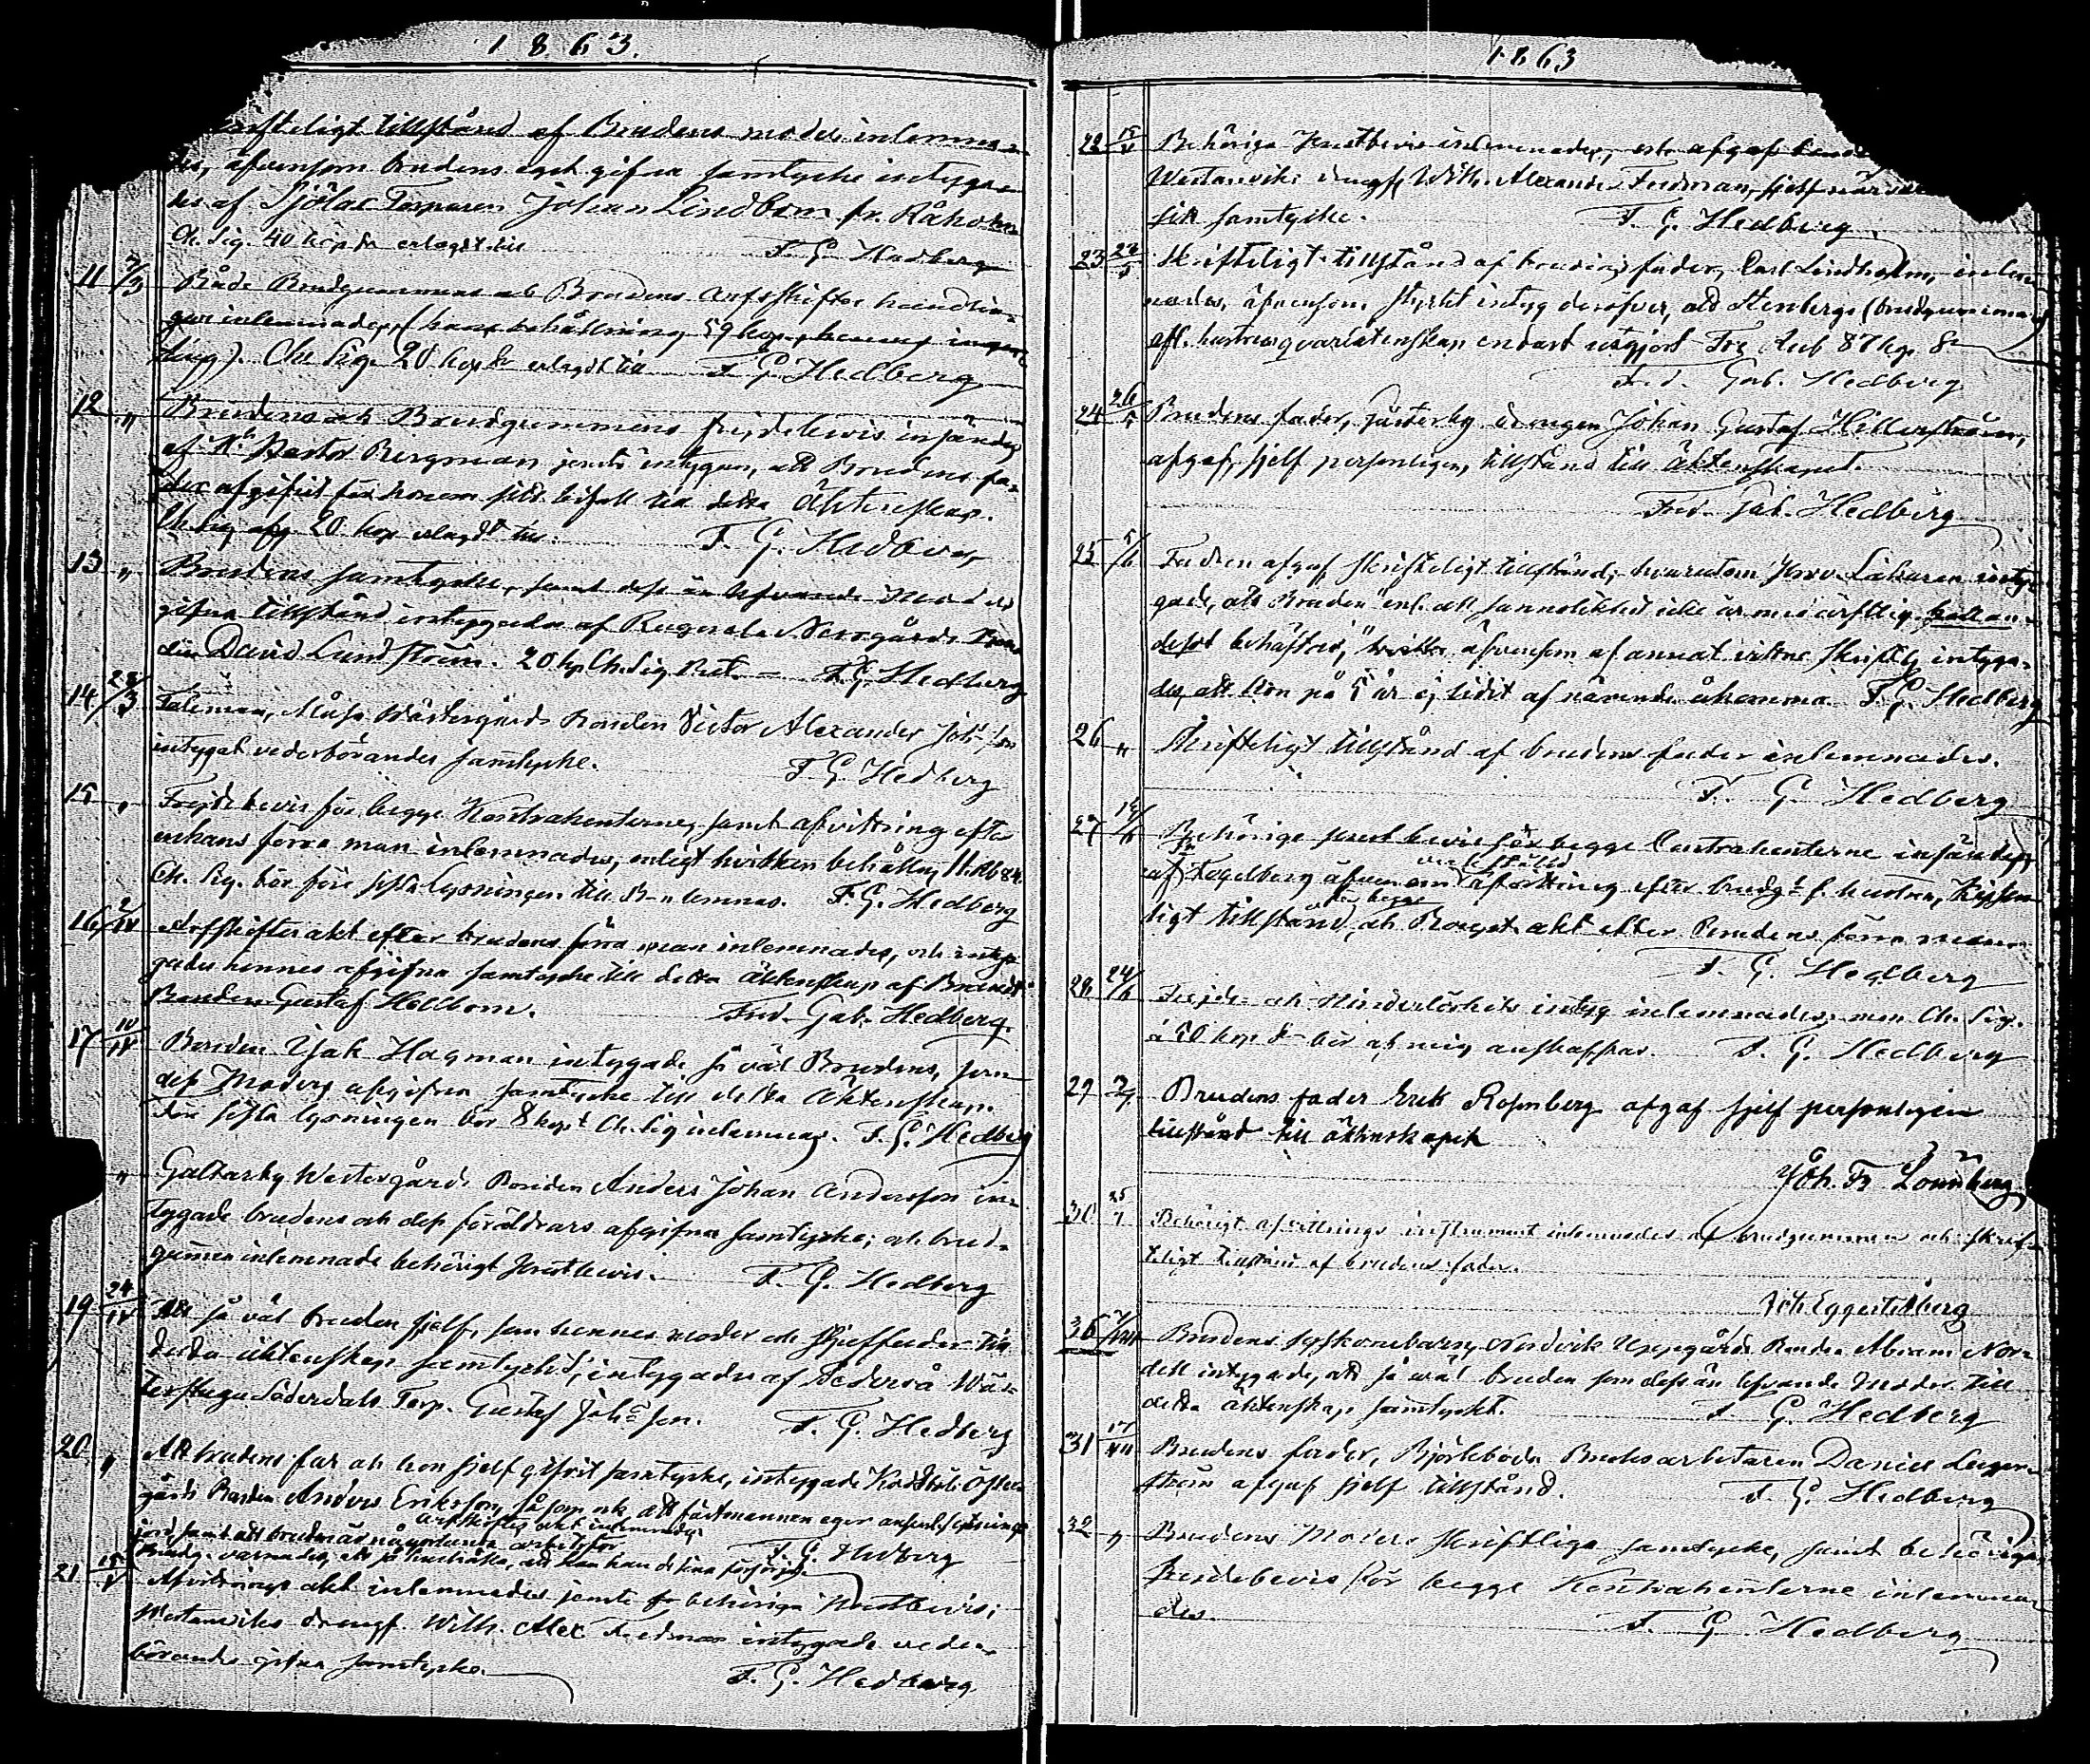 1863.
skrifteligt tillstånd af Brudens moder inlemna-
des, äfvensom brudens eget gifna samtycke intyga-
des af Sjölax Torparen Johan Lindbom fr.
Ch. Sig. 40 kop. erlagdt till F. G. Hedberg
11 7/3 Både Brudgummens och Brudens arfskiftes handlin-
gar inlemnades, (hans behållning 59 kop., hennes ingen-
ting). Ch. Sig. 20 kop. Sr erlagdt till F. G. Hedberg
12 " Brudens och Brudgummens frejdebevis insändes
af Hr Pastor Bergman jemte intygan, att Brudens fa-
der afgifvit för honom sitt bifall till detta Äktenskap.
Ch. Sig. 20 kop erlagdt till. F. G. Hedberg
13 " Brudens samtycke, samt dess än lefvande Moders
gifna tillstånd intygades af Nerrgårds
David Lundström. 20 kp Ch. Sig. F. G. Hedberg
14 22/3 Talesman, Westergårds Bonden Victor Alexander Joh:son
intygat vederbörandes samtycke. F. G. Hedberg
15 " Frejdebevis för begge Kontrahenterne, samt afvittring efter
enkans förra man inlemnades, enligt hvilken behålln. 11. Rb 84.
Ch. Sig. bör före sista lysningen till B-n lemnas. F. G. Hedberg
16 2/IV Arfskiftesakt efter brudens förra man inlemnades, och inty-
gades hennes afgifna samtycke till detta äktenskap af
Bonden Gustaf Hellbom. Fred. Gab. Hedberg.
17 10/IV Bonden Isak Hagman intygade så väl Brudens, som
dess Moders afgifna samtycke till detta Äktenskap.
Före sista lysningen bör 8 kop Ch. Sig inlemnas. F. G. Hedberg
" Galtarby Westergårds Bonden Anders Johan Andersson in-
tygade brudens och dess föräldrars afgifna samtycke; och brud-
gummen inlemnade behörigt Prestbevis. F. G. Hedberg
19 24/IV Att så väl bruden sjelf, som hennes moder och styffader till
detta äktenskap samtyckt, intygades af Wäs-
Söderdahls Torp. Gustaf Joh:son. F. G. Hedberg
20 " Att brudens far och hon sjelf gifvit samtycke, intygade Öster-
gårds Bonden Anders Eriksson, såsom ock att fästmannen eger
arfskiftes akt inlemnades
jord, samt att bruden är arbetsför
F. G. Hedberg
21 15/V Afvittrings akt inlemnades jemte behöriga Prestbevis;
Westanviks drengf. Wilh. Alex Fredman intygade veder-
börandes gifna samtycke. F. G. Hedberg
1863
22 15/V Behöriga Prestbevis inlemnades, och afgaf
Westanviks drengf. Wilh. Alexander Fredman, sjelf
sitt samtycke. F. G. Hedberg
23 23/5 Skrifteligt tillstånd af brudens fader, Carl Lindholm, inlem-
nades, äfvensom styrkt intyg deröfver, att Stenbergs (brudgummens)
afl. hustrus qvarlåtenskap endast utgjort Tre Rub 87 kp. Sr
Fred. Gab. Hedberg
24 26/5 Brudens fader, drengen Johan Gustaf Hellerström,
afgaf sjelf personligen, tillstånd till äktenskapet.
Fred. Gab. Hedberg
25 5/6 Fadren afgaf skrifteligt tillstånd, hvarutom Prov. Läkaren inty-
gade, att Bruden "enl. all sannolikhet icke är med ärftlig
behäftad," äfvensom af annat vittne skriftl. intyga-
des, att hon på 5 år ej lidit af nämnde åkomma. F. G. Hedberg
26 " Skrifteligt tillstånd af brudens fader inlemnades.
F. G. Hedberg
27 14/6 Behörige prestbevis för begge Contrahenterne insändes
af Fogelberg äfven om afvittring efter brudg:s f. hustru,
ligt tillstånd, och Bouppt. akt efter Brudens förra man
F. G. Hedberg
28 24/6 Frejde- och Hinderlöshets intyg inlemnades, men Ch. Sig.
à 50 kop Sr bör af mig anskaffas. F. G. Hedberg
29 3/7 Brudens fader Erik Rosenberg afgaf sjelf personligen
tillstånd till äktenskapet
Joh. Fr Lönnberg
30 25/7 Behörigt afvittrings instrument inlemnades af brudgummen och skrif-
teligt tillstånd af brudens fader.
Joh Eggertsberg
36 7/VIII Brudens syskonebarn, Nordvik Uppgårds Bonden Abram Nor-
dell intygade, att så wäl bruden som dess än lefvande Moder till
detta äktenskap samtyckt. F. G. Hedberg
31 17/VII Brudens fader, Björkboda Bruksarbetaren Daniel Lager-
ström afgaf sjelf tillstånd. F. G. Hedberg
32 " Brudens Moders skriftliga samtycke, samt behöriga
Frejdebevis för begge Kontrahenterne inlemna-
des. F. G. Hedberg